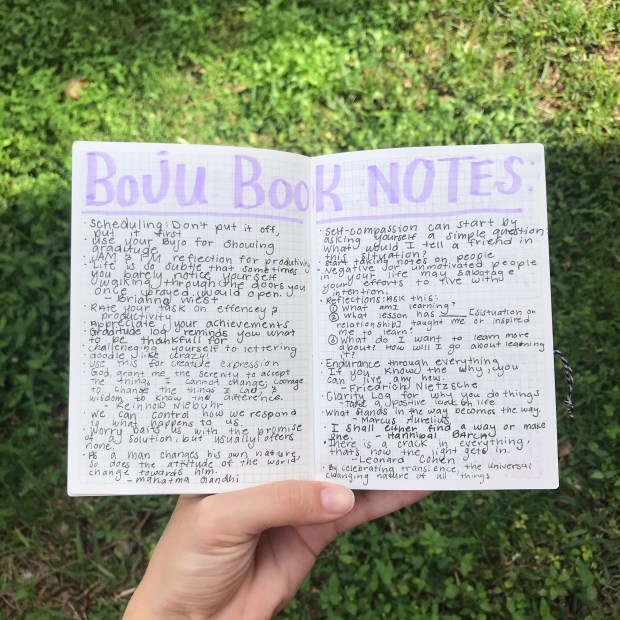 BOJU BOOK NOTES:
· Scheduling: Don't put it off,
put it first
· use your Bujo for showing
gratitude
· AM & PM reflection for productivity
· Life is so subtle that sometimes
you barely notice yourself
walking through the doors you
once prayed would open.
- Brianna Wiest
· Rate your task on effencey &
productivity
· Appreciate your achievements
· Gratitude log reminds you what
to be thankfull for
· challeneging yourself to lettering
· doodle like crazy!
· use this for creative expression
· God, grant me the serenity to accept
the things I cannot change; courage
to change the things I can;
wisdom to know the difference.
- Reinhold Niebuhr
· We can control how we respond
to what happens to us.
· Worry baits us with the promise
of a solution, but usually offers
none.
· As a man changes his own nature,
so does the attitude of the world
change towards him.
- mahatma Gandhi
· Self-compassion can start by
asking yourself a simple question:
What would I tell a friend in
this situation?
· Start taking notes on people
· Negative or unmotivated people
in your life may sabotage
your efforts to live with
intention.
· Reflections: Ask this:
① What am I learning?
② What lesson has ___ [situation or
relationship] taught me or inspired
me to learn?
③ What do I want to learn more
about? How will I go about learning
it?
· Endurance through everything
· If you know the why, you
can live any how.
- Friedrich Nietzsche
· Clarity Log for why you do things
- Take a positive look on life
· What stands in the way becomes the way.
- Marcus Aurelius
· I shall either find a way or make
one. - Hannibal Barca
· There is a crack in everything,
that's how the light gets in.
- Leonard Cohen
· By celebrating transience, the universal
changing nature of all things